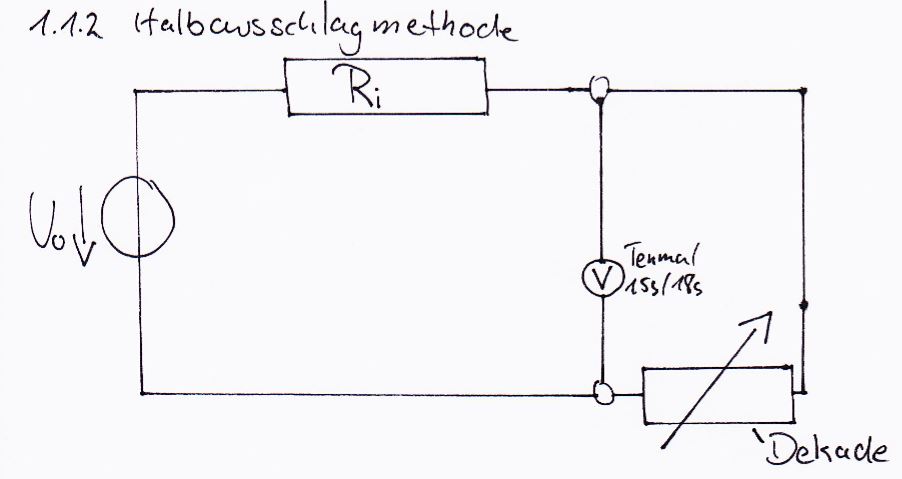 1.1.2 Halbausschlagmethode
Ri
U₀
V
Tenmal
15s/18s
Dekade